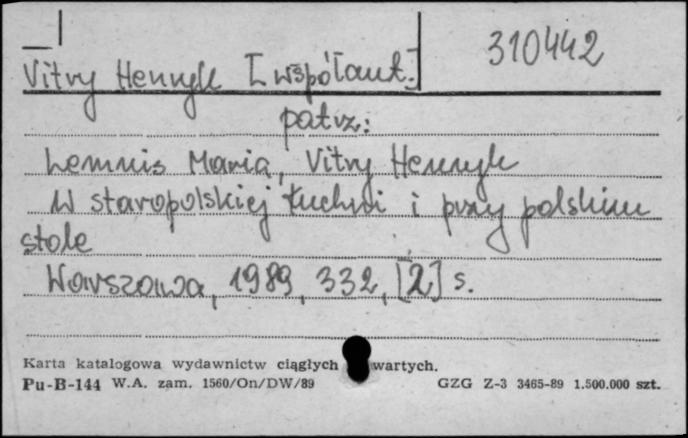 310442
Vitry Henryk [współaut.]
patrz:
Lemnis Maria, Vitry Henryk
W staropolskiej kuchni i przy polskim
stole
Warszawa, 1989, 332, [2] s.
Karta katalogowa wydawnictw ciągłych wartych.
Pu-B-144 W.A. zam. 1560/On/DW/89 GZG Z-3 3465-89 1.500.000 szt.